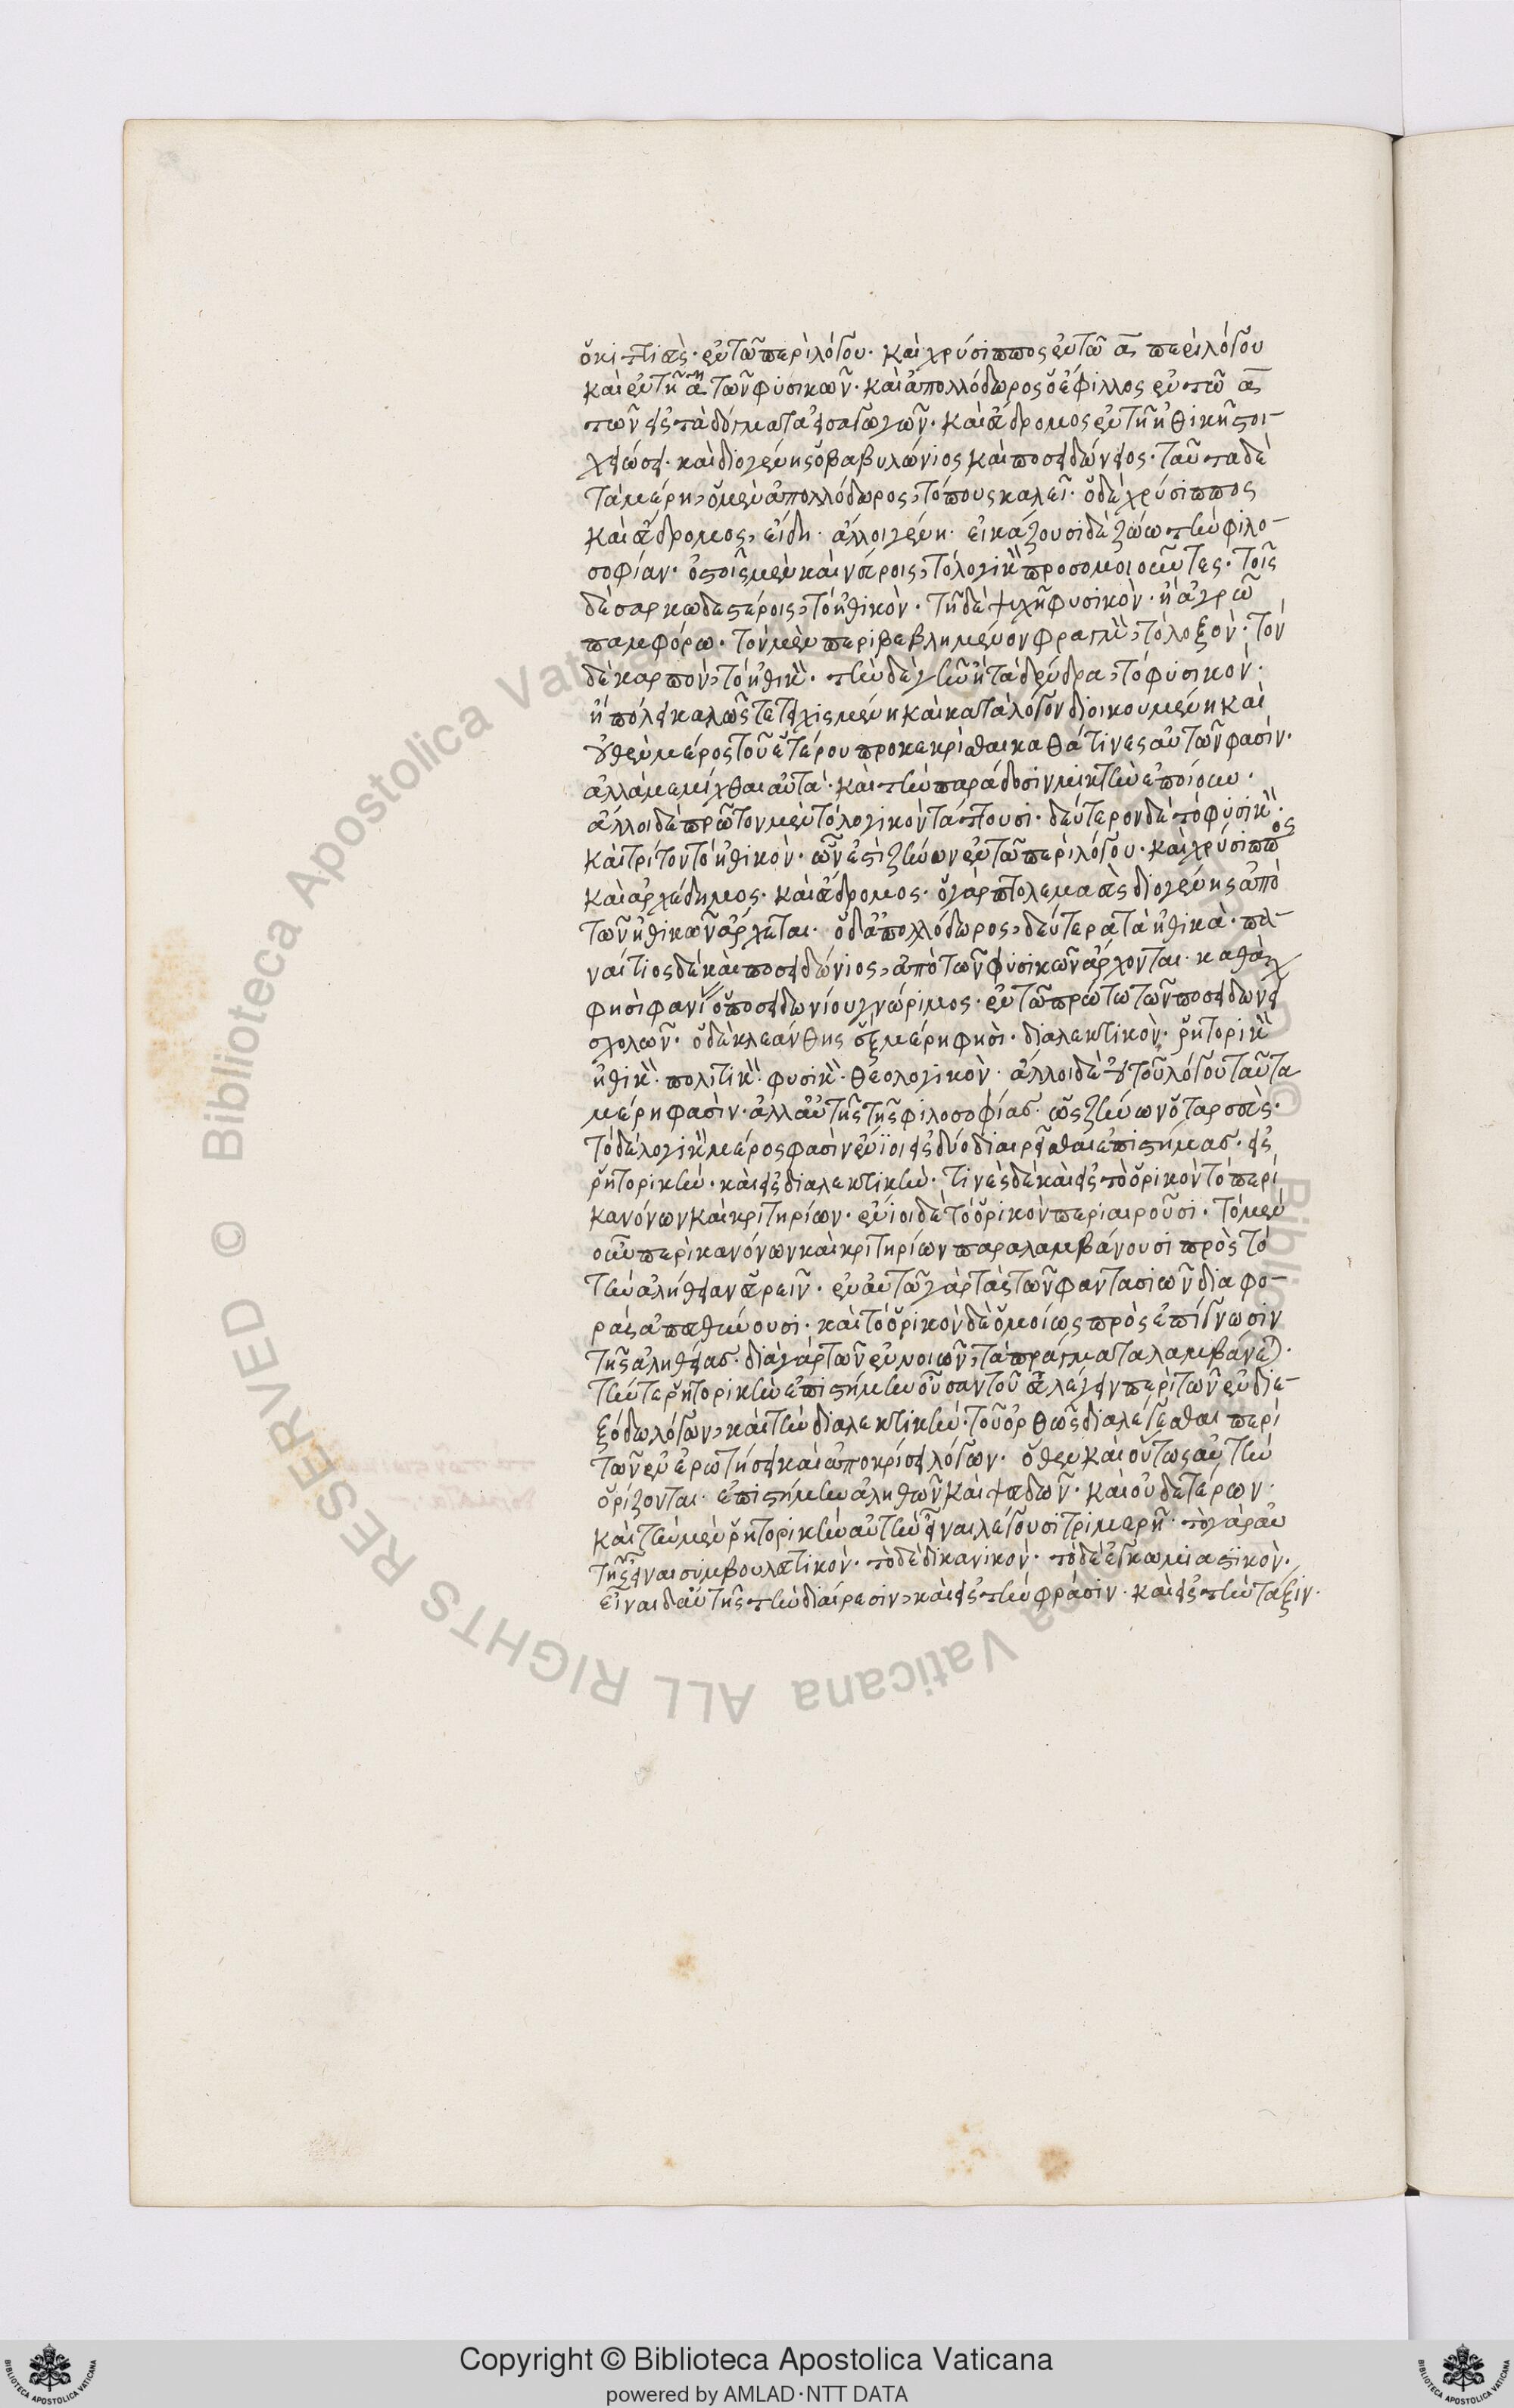 ὁ κιττιεὺς· ἐν τῶ περὶ λόγου· καὶ χρύσιππος ἐν τῶ α περὶ λόγου
καὶ ἐν τῆ α^η τῶν φυσικῶν· καὶ ἀπολλόδωρος ὁ ἔφιλλος ἐν τῶ α
τῶν εἰς τὰ δόγματα εἰσαγωγῶν· καὶ εὔδρομος ἐν τῆ ἠθικῆ στοι-
χειώσει· καὶ διογένης ὁ βαβυλώνιος καὶ ποσειδώνειος· ταῦτα δὲ
τὰ μέρη, ὁ μὲν ἀπολλόδωρος, τόπους καλεῖ· ὁ δὲ χρύσιππος
καὶ εὔδρομος, εἴδη· ἄλλοι γένη· εἰκάζουσι δὲ ζώω τὴν φιλο-
σοφίαν· ὀστοῖς μὲν καὶ νεύροις, τὸ λογικ(ὸν) προσομοιοῦντες· τοῖς
δὲ σαρκωδεστέροις, τὸ ἠθικὸν· τῆ δὲ ψυχῆ φυσικὸν· ἢ ἀγρῶ
παμφόρω· τὸν μὲν περιβεβλημένον φραγμ(ὸν), τὸ λοξὸν· τὸν
δὲ καρπὸν, τὸ ἠθικ(ὸν)· τὴν δὲ γῆν ἢ τὰ δένδρα, τὸ φυσικόν·
ἢ πόλει καλῶς τετειχισμένη καὶ κατὰ λόγον διοικουμένη καὶ
οὐθὲν μέρος τοῦ ἑτέρου προκεκρίσθαι καθά τινες αὐτῶν φασίν·
ἀλλὰ μεμίχθαι αὐτά· καὶ τὴν παράδοσιν μικτὴν ἐποίουν·
ἄλλοι δὲ πρῶτον μὲν τὸ λογικὸν τάττουσι· δεύτερον δὲ τὸ φυσικ(ὸν)·
καὶ τρίτον τὸ ἠθικὸν· ὧν ἐστὶ ζήνων ἐν τῶ περὶ λόγου· καὶ χρύσιππος
καὶ ἀρχέδημος· καὶ εὔδρομος· ὁ γὰρ πτολεμαεὺς διογένης ἀπὸ
τῶν ἠθικῶν ἄρχεται· ὁ δ' ἀπολλόδωρος, δεύτερα τὰ ἠθικὰ· πα-
ναίτιος δὲ καὶ ποσειδώνιος, ἀπὸ τῶν φυσικῶν ἄρχονται· καθά
φησὶ φανί(ας) ὁ ποσειδωνίου γνώριμος· ἐν τῶ πρώτω τῶν ποσειδωνεί
σχολῶν· ὁ δὲ κλεάνθης ἓξ μέρη φησὶ· διαλεκτικὸν· ῥητορικ(ὸν)
ἠθικ(ὸν)· πολιτικ(ὸν)· φυσικ(ὸν)· θεολογικὸν· ἄλλοι δὲ οὐ τοῦ λόγου ταῦτα
μέρη φασὶν· ἀλλ' αὐτῆς τῆς φιλοσοφίας· ὡς ζήνων ὁ ταρσεὺς·
τὸ δὲ λογικ(ὸν) μέρος φασὶν ἔνιοι εἰς δύο διαιρεῖσθαι ἐπιστήμας· εἰς
ῥητορικὴν· καὶ εἰς διαλεκτικὴν· τινὲς δὲ καὶ εἰς τὸ ὁρικὸν τὸ περὶ
κανόνων καὶ κριτηρίων· ἔνιοι δὲ τὸ ὁρικὸν περιαιροῦσι· τὸ μὲν
οὖν περὶ κανόνων καὶ κριτηρίων παραλαμβάνουσι πρὸς τὸ
τὴν ἀλήθειαν εὑρεῖν· ἐν αὐτῶ γὰρ τὰς τῶν φαντασιῶν διαφο-
ρὰς ἀπευθύνουσι· καὶ τὸ ὁρικὸν δὲ ὁμοίως πρὸς ἐπίγνωσιν
τῆς ἀληθείας· διὰ γὰρ τῶν ἐννοιῶν, τὰ πράγματα λαμβάνε(ται)·
τήν τε ῥητορικὴν ἐπιστήμην οὖσαν τοῦ εὖ λέγειν περὶ τῶν ἐν διε-
ξόδω λόγων, καὶ τὴν διαλεκτικὴν· τοῦ ὀρθῶς διαλέγεσθαι περὶ
τῶν ἐν ἐρωτήσει καὶ ἀποκρίσει λόγων· ὅθεν καὶ οὕτως αὐτὴν
ὁρίζονται· ἐπιστήμην ἀληθῶν καὶ ψευδῶν· καὶ οὐδετέρων·
καὶ τὴν μὲν ῥητορικὴν αὐτὴν εἶναι λέγουσι τριμερῆ· τὸ γὰρ αὐ
τῆς εἶναι συμβουλευτικὸν· τὸ δὲ δικανικὸν· τὸ δὲ ἐγκωμιαστικὸν·
εἶναι δ' αὐτῆς τὴν διαίρεσιν, καὶ εἰς τὴν φράσιν· καὶ εἰς τὴν τάξιν·
Copyright © Biblioteca Apostolica Vaticana
powered by AMLAD·NTT DATA